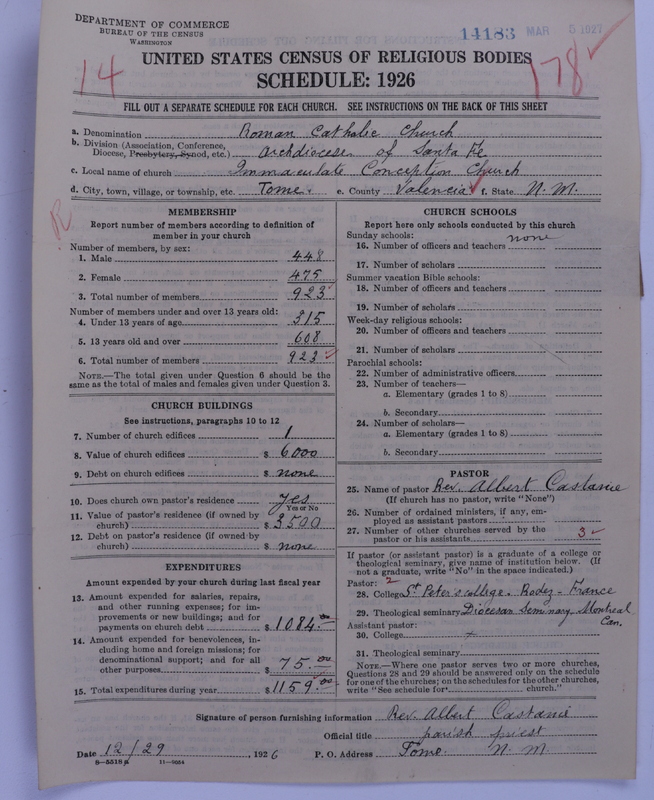 DEPARTMENT OF COMMERCE
BUREAU OF THE CENSUS
WASHINGTON
14183 MAR 5 1927
14
178
UNITED STATES CENSUS OF RELIGIOUS BODIES
SCHEDULE: 1926
FILL OUT A SEPARATE SCHEDULE FOR EACH CHURCH. SEE INSTRUCTIONS ON THE BACK OF THIS SHEET
a. Denomination Roman Catholic Church
b. Division (Association, Conference, Diocese, Presbytery, Synod, etc.) Archdiocese of Santa Fe
c. Local name of church Immaculate Conception Church
d. City, town, village, or township, etc. Tome e. County Valencia f. State N. M.
R
MEMBERSHIP
Report number of members according to definition of member in your church
Number of members, by sex:
1. Male 448
2. Female 475
3. Total number of members 923
Number of members under and over 13 years old:
4. Under 13 years of age 315
5. 13 years old and over 608
6. Total number of members 923
NOTE.—The total given under Question 6 should be the same as the total of males and females given under Question 3.
CHURCH BUILDINGS
See instructions, paragraphs 10 to 12
7. Number of church edifices 1
8. Value of church edifices $ 6000
9. Debt on church edifices $ none
10. Does church own pastor's residence yes
Yes or No
11. Value of pastor's residence (if owned by church) $ 3500
12. Debt on pastor's residence (if owned by church) $ none
EXPENDITURES
Amount expended by your church during last fiscal year
13. Amount expended for salaries, repairs, and other running expenses; for improvements or new buildings; and for payments on church debt $ 1084.00
14. Amount expended for benevolences, including home and foreign missions; for denominational support; and for all other purposes $ 75.00
15. Total expenditures during year $ 1159.00
CHURCH SCHOOLS
Report here only schools conducted by this church
Sunday schools:
16. Number of officers and teachers none
17. Number of scholars
Summer vacation Bible schools:
18. Number of officers and teachers
19. Number of scholars
Week-day religious schools:
20. Number of officers and teachers
21. Number of scholars
Parochial schools:
22. Number of administrative officers
23. Number of teachers—
a. Elementary (grades 1 to 8)
b. Secondary
24. Number of scholars—
a. Elementary (grades 1 to 8)
b. Secondary
PASTOR
25. Name of pastor Rev. Albert Castanie
(If church has no pastor, write "None")
26. Number of ordained ministers, if any, employed as assistant pastors
27. Number of other churches served by the pastor or his assistants 3
If pastor (or assistant pastor) is a graduate of a college or theological seminary, give name of institution below. (If not a graduate, write "No" in the space indicated.)
Pastor: 2
28. College St Peter's college. Rodez - France
29. Theological seminary Diocesan Seminary Montreal Can.
Assistant pastor:
30. College x
31. Theological seminary
NOTE.—Where one pastor serves two or more churches, Questions 28 and 29 should be answered only on the schedule for one of the churches; on the schedules for the other churches, write "See schedule for church."
Signature of person furnishing information Rev. Albert Castanie
Official title parish priest
Date 12/29, 1926 P. O. Address Tome. N. M.
8-5518a 11-9054